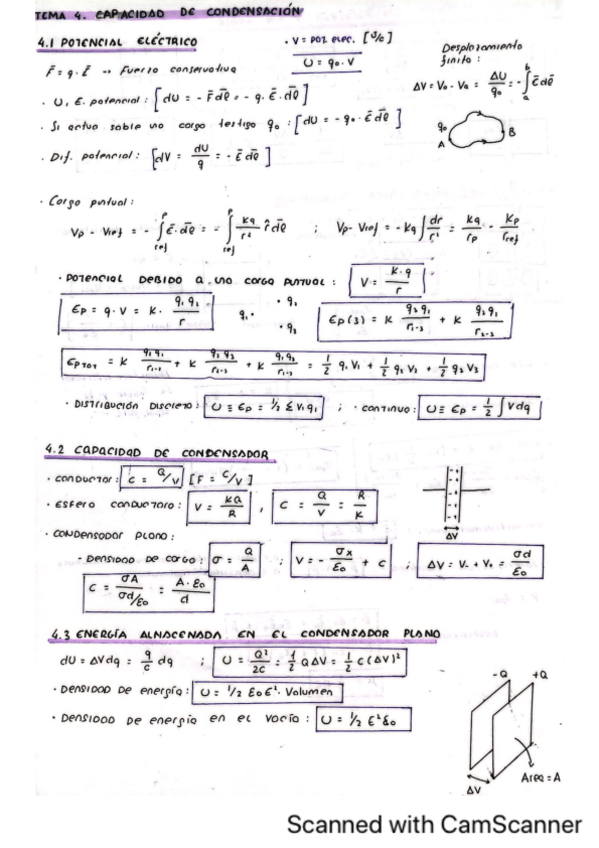 TEMA 4. CAPACIDAD DE CONDENSACIÓN
4.1 POTENCIAL ELÉCTRICO
· V = POT. ELEC. [J/c]
U = q₀ · V
Desplazamiento finito:
ΔV = V_b - V_a = ΔU/q₀ = -∫_a^b Ē dℓ̄
F̄ = q · Ē → Fuerza conservativa
· U, E. potencial: [dU = - F̄dℓ̄ = - q · Ē · dℓ̄]
· Si actua sobre una carga testigo q₀: [dU = - q₀ · Ē dℓ̄]
q₀ A B
· Dif. potencial: [dV = dU/q = - Ē dℓ̄]
· Carga puntual:
Vp - Vref = - ∫_ref^P Ē · dℓ̄ = - ∫_ref^P kq/r² r̂ dℓ̄ ; Vp - Vref = - kq ∫ dr/r² = kq/rp - kp/rref
· POTENCIAL DEBIDO A UNA CARGA PUNTUAL: V = k · q/r
Ep = q · V = k · q₁ q₂/r
q₁ · · q₂ · q₃
Ep(3) = k q₃q₁/r₁₋₃ + k q₃q₂/r₂₋₃
EpTOT = k q₂q₁/r₁₋₂ + k q₂q₃/r₂₋₃ + k q₁q₃/r₁₋₃ = 1/2 q₁V₁ + 1/2 q₂V₂ + 1/2 q₃V₃
· DISTRIBUCIÓN DISCRETA: U ≡ Ep = 1/2 Σ Vᵢqᵢ ; · CONTINUO: U ≡ Ep = 1/2 ∫ V dq
4.2 CAPACIDAD DE CONDENSADOR
· CONDUCTOR: C = Q/V [F = C/V]
· ESFERA CONDUCTORA: V = kQ/R , C = Q/V = R/k
ΔV
· CONDENSADOR PLANO:
- DENSIDAD DE CARGA: σ = Q/A ; V = - σx/ε₀ + c ; ΔV = V₋ + V₊ = σd/ε₀
C = σA/σd/ε₀ = A · ε₀/d
4.3 ENERGÍA ALMACENADA EN EL CONDENSADOR PLANO
dU = ΔV dq = q/c dq ; U = Q²/2C = 1/2 QΔV = 1/2 C(ΔV)²
· DENSIDAD DE energía: U = 1/2 ε₀E² · Volumen
· DENSIDAD DE energía en el vacío: U = 1/2 E²ε₀
-Q +Q
Area = A
ΔV
Scanned with CamScanner